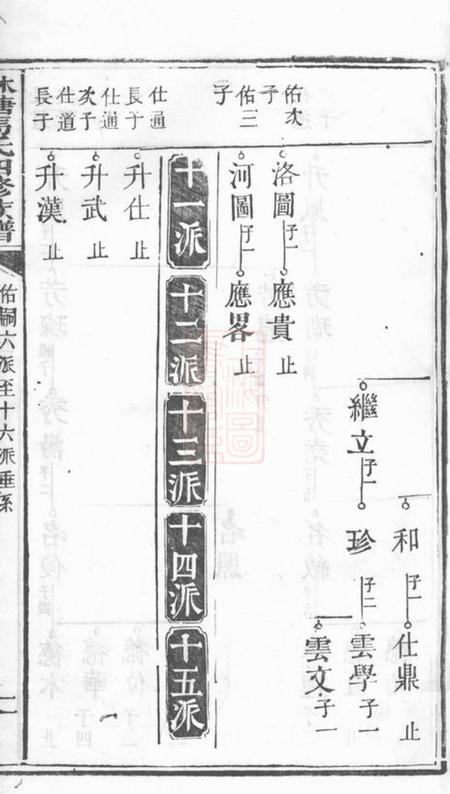 佑次子
洛圖 子一 應貴 止
佑三子
河圖 子一 應畧 止
和 子一 仕鼎 止
繼立 子一 珍 子二 雲學 子一
雲文 子一
十一派 十二派 十三派 十四派 十五派
仕通長子
升仕 止
仕通次子
升武 止
仕道長子
升漢 止
氏四修族譜
佑嗣六派至十六派垂系